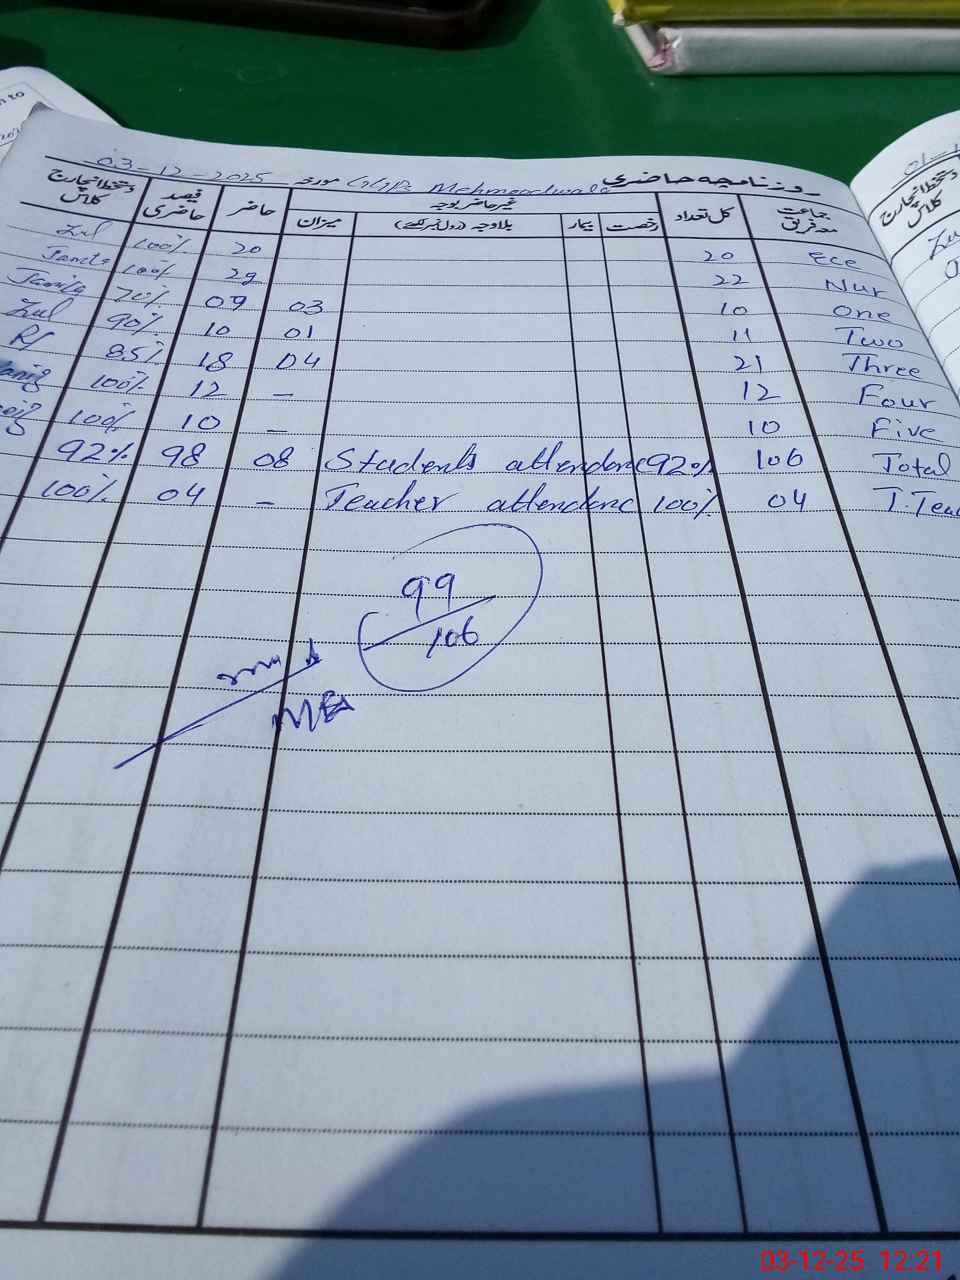 روزنامچہ حاضری GGPS Mehmoodwala مورخہ 03-12-2025
جماعت معہ فریق کل تعداد غیر حاضر بوجہ حاضر فیصد حاضری دستخط انچارج کلاس
رخصت بیمار بلاوجہ (رول نمبر لکھیے) میزان
Ece 20 20 100% Zul
Nur 22 22 100%
One 10 03 09 70%
Two 11 01 10 90% Zul
Three 21 04 18 85%
Four 12 – 12 100%
Five 10 – 10 100%
Total 106 Students attendenc 92% 08 98 92%
T.Tea 04 Teacher attendenc 100% – 04 100%
99
106
03-12-25 12:21